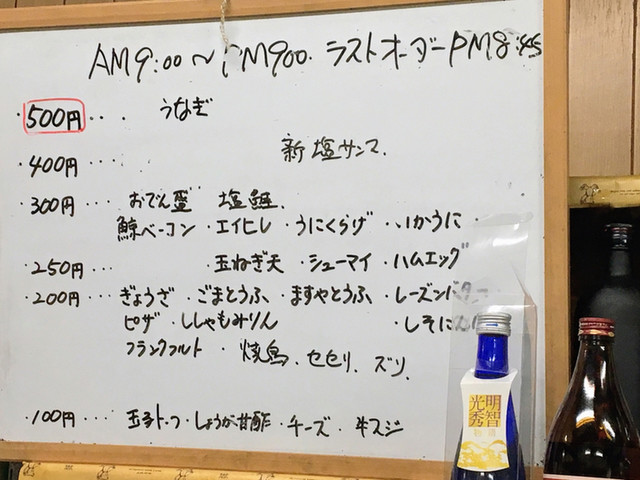 AM9:00〜PM900. ラストオーダーPM8:45
・500円・・・ うなぎ
・400円・・・ 新塩サンマ.
・300円・・・ おでん 塩
鯨ベーコン・エイヒレ・うにくらげ・いかうに・
・250円・・・・ 玉ねぎ天・シューマイ・ハムエッグ
・200円・・・ ぎょうざ・ごまとうふ・ますやとうふ・レーズンバター
ピザ・ししゃもみりん ・しそ
フランクフルト・焼鳥、セセリ、ズリ、
・100円・・・・ 玉子トーフ・しょうが甘酢・チーズ・牛スジ
明智
光秀